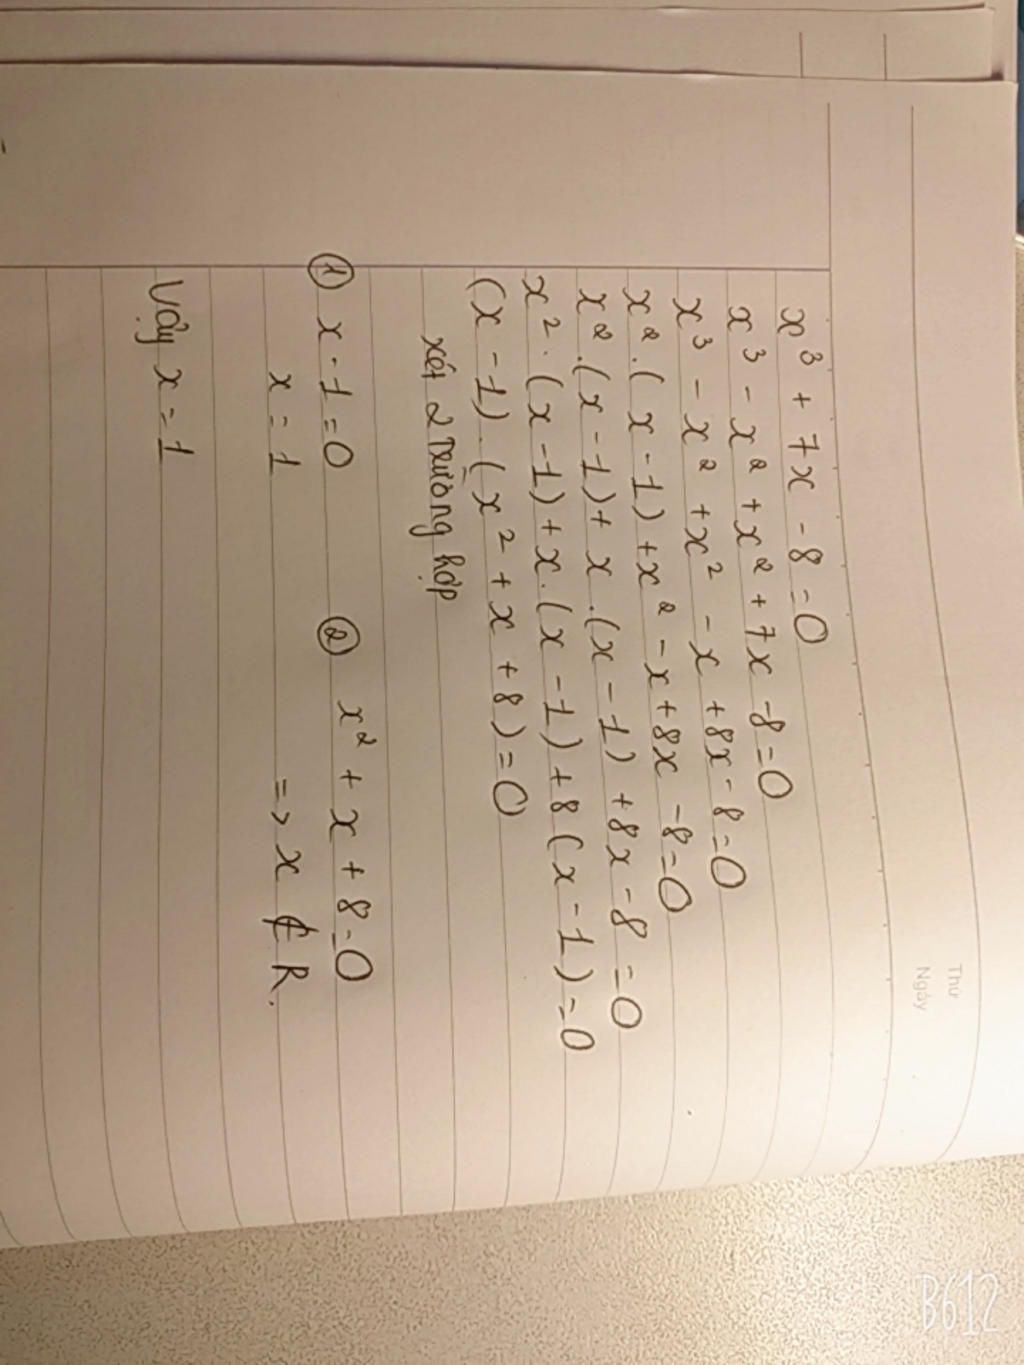 Thứ
Ngày
x³ + 7x - 8 = 0
x³ - x² + x² + 7x - 8 = 0
x³ - x² + x² - x + 8x - 8 = 0
x².(x - 1) + x² - x + 8x - 8 = 0
x².(x - 1) + x.(x - 1) + 8x - 8 = 0
x².(x - 1) + x.(x - 1) + 8(x - 1) = 0
(x - 1).(x² + x + 8) = 0
xét 2 trường hợp
① x - 1 = 0 ② x² + x + 8 = 0
x = 1 => x ∉ R.
Vậy x = 1
B612